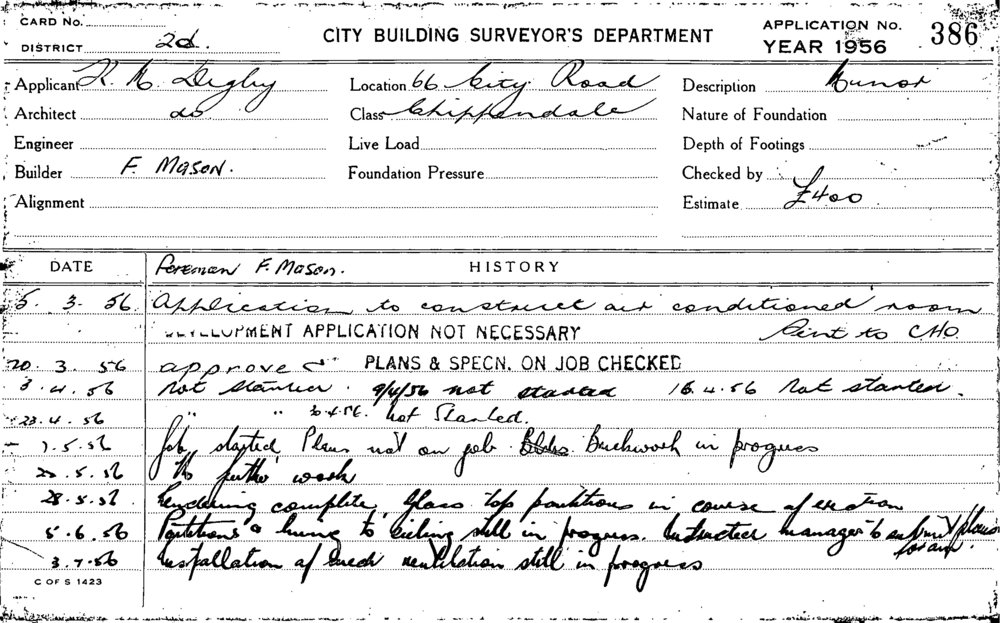 CARD No.
DISTRICT 2d.
CITY BUILDING SURVEYOR'S DEPARTMENT
APPLICATION No. 386
YEAR 1956
Applicant K. M. Digby Location 66 City Road Description Minor
Architect do Class Chippendale Nature of Foundation
Engineer Live Load Depth of Footings
Builder F. Mason. Foundation Pressure Checked by
Alignment Estimate £400
DATE Foreman F. Mason. HISTORY
5. 3. 56 Application to construct air conditioned room
DEVELOPMENT APPLICATION NOT NECESSARY Sent to C.H.O.
20. 3. 56 approved PLANS & SPECN. ON JOB CHECKED
3. 4. 56 Not started. 9/4/56 not started 16.4.56 Not started.
23.4.56 " " 30.4.56. Not Started.
7.5.56 Job started Plans not on job Brickwork in progress
22.5.56 No further work
28.5.56 Rendering complete, Glass top partitions in course of erection
5.6.56 Partitions & lining to ceiling still in progress. Instructed manager to submit plans
for am.
3.7.56 Installation of mech ventilation still in progress
C OF S 1423